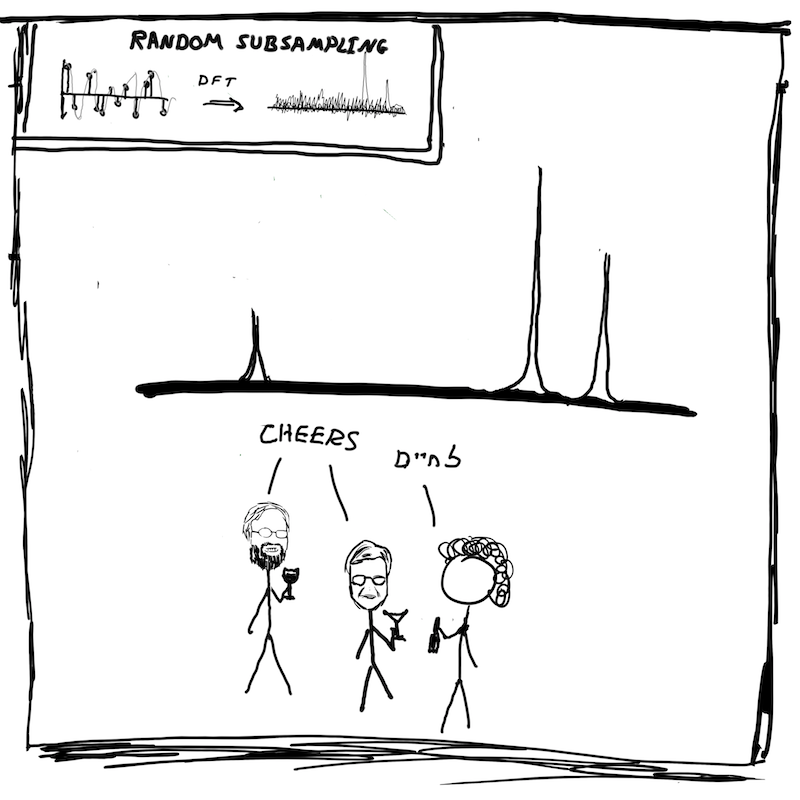 RANDOM SUBSAMPLING
DFT
CHEERS
לחיים